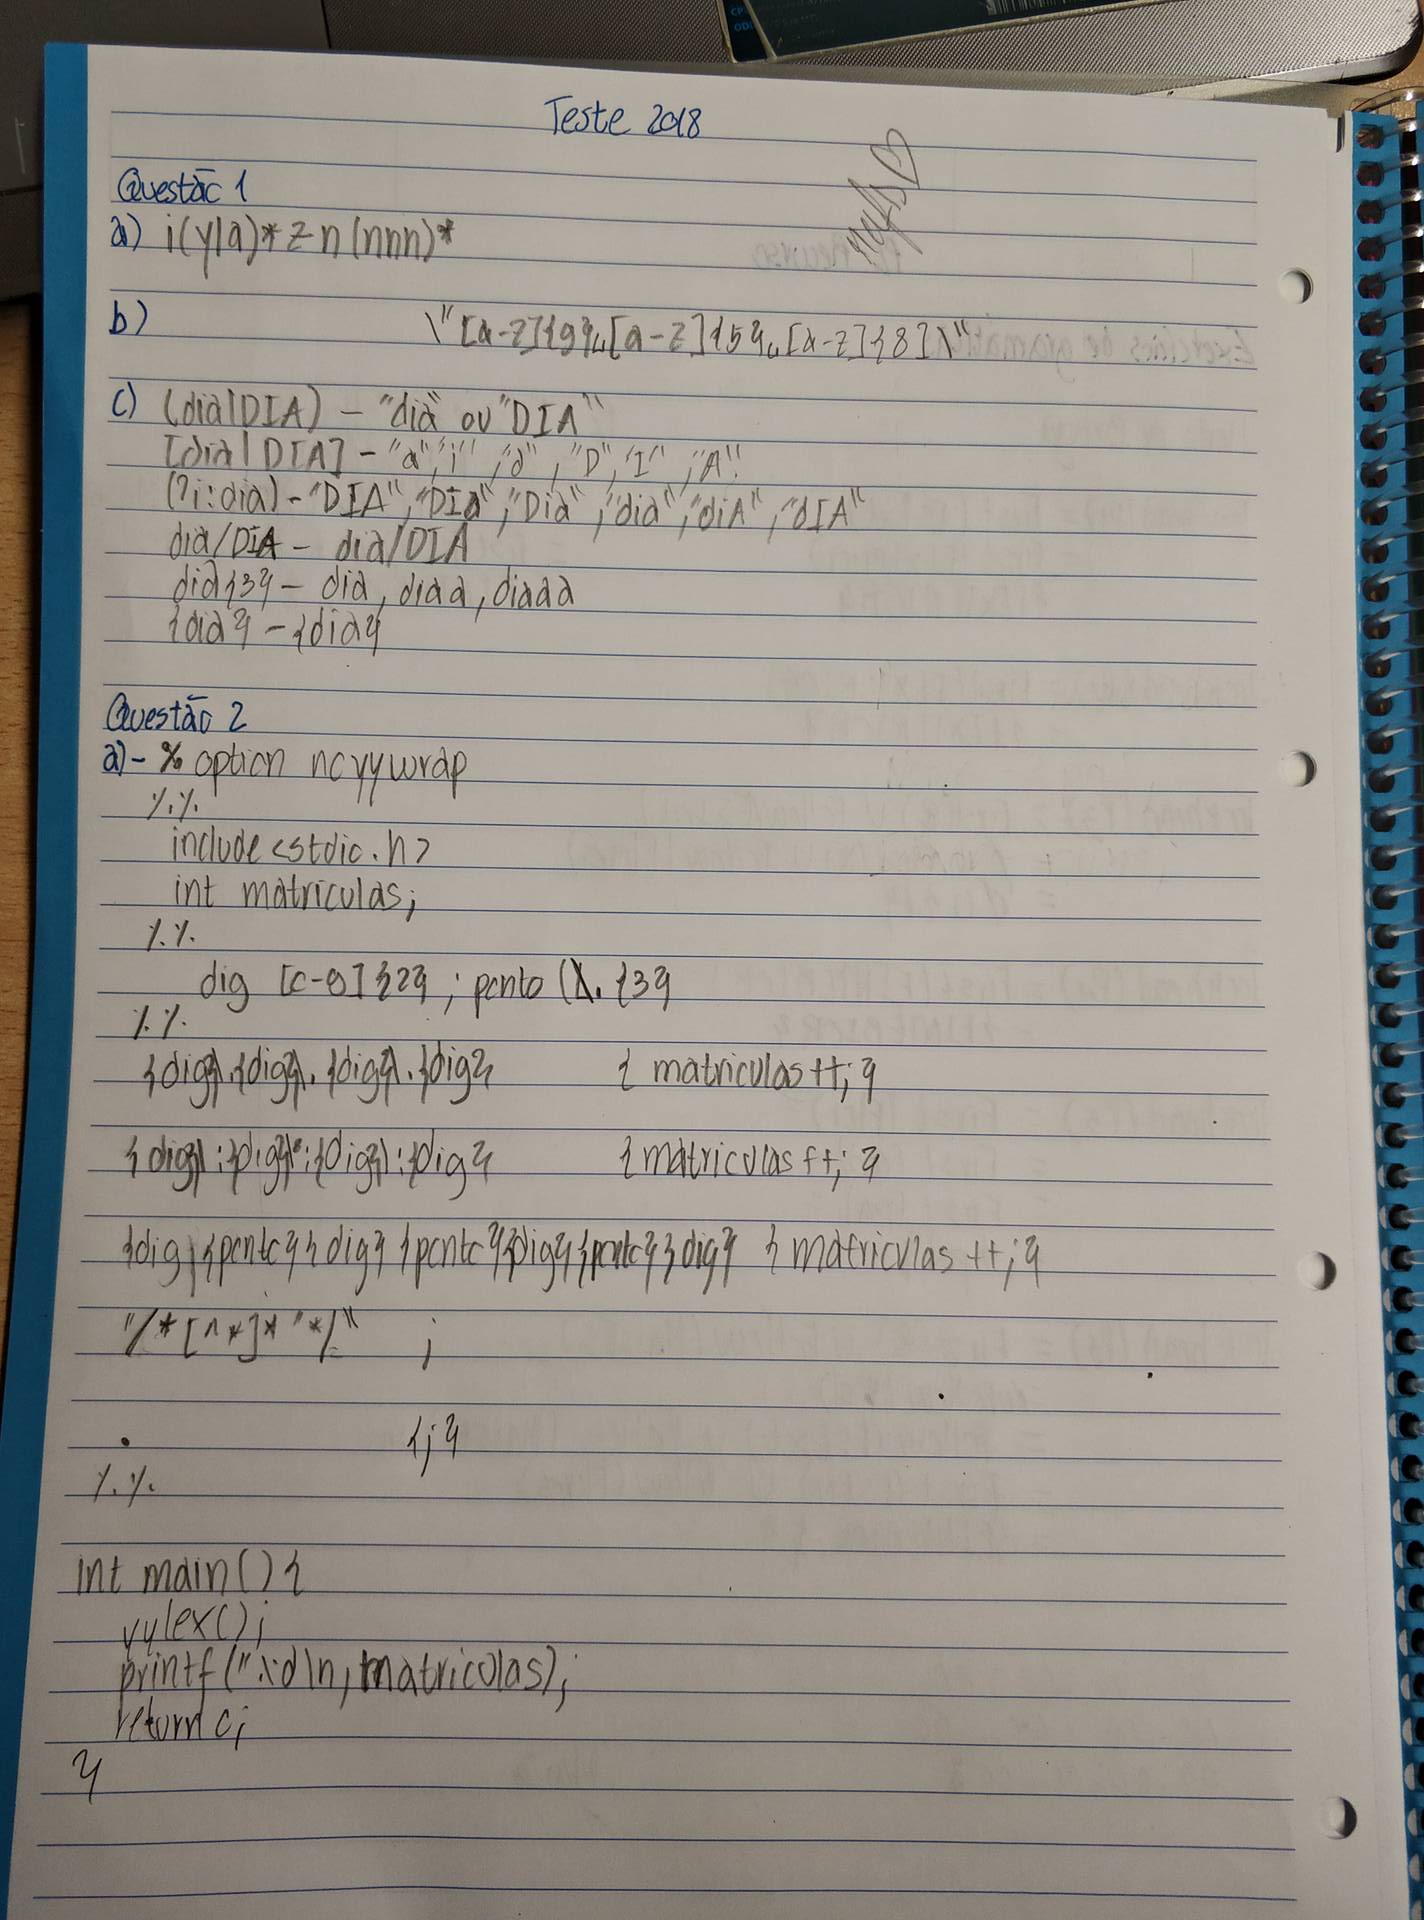 Teste 2018
Questão 1
a) i(y|a)*zn(nnn)*
b) \"[a-z]{9}␣[a-z]{5}␣[a-z]{8]\"
c) (dia|DIA) - "dia" ou "DIA"
[dia|DIA] - "a", "i", "d", "D", "I", "A".
(?i:dia) - "DIA", "DIa", "Dia", "dia", "diA", "dIA"
dia/DIA - dia/DIA
dia{3} - dia, diaa, diaaa
{dia} - {dia}
Questão 2
a) - % option noyywrap
%%
include <stdio.h>
int matriculas;
%%
dig [0-9]{2} ; ponto (\. {3}
%%
{dig}\.{dig}\.{dig}\.{dig} { matriculas++; }
{dig}\:{dig}\:{dig}\:{dig} { matriculas++; }
{dig}{ponto}{dig}{ponto}{dig}{ponto}{dig} { matriculas++; }
"/*[^*]*"*/" ;
. {;}
%%
int main(){
yylex();
printf("%d\n, matriculas);
return 0;
}